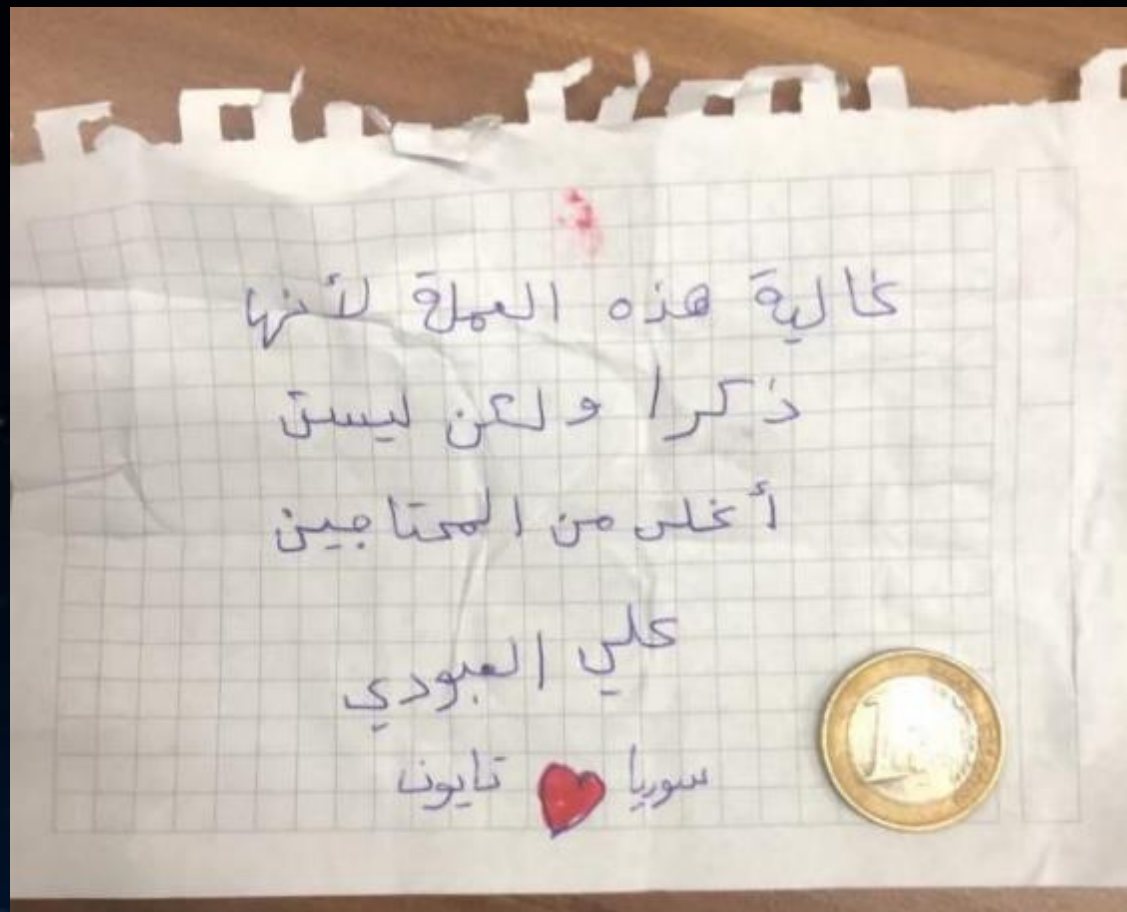 غالية هذه العملة لأنها
ذكرا ولكن ليست
أغلى من المحتاجين
علي العبودي
سوريا ❤ تايون
1